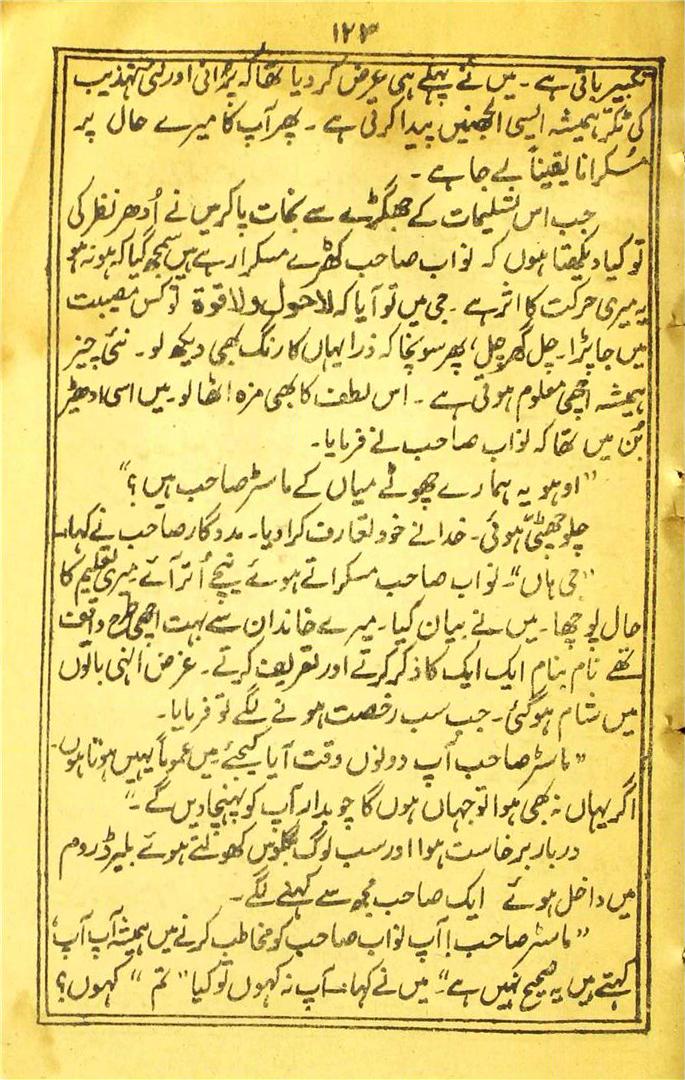 ۱۲۳
تکبیر باقی ہے۔ میں نے پہلے ہی عرض کر دیا تھا کہ پرانی اور نئی تہذیب
کی ٹکر ہمیشہ ایسی الجھنیں پیدا کرتی ہے۔ پھر آپ کا میرے حال پر
مُسکرانا یقیناً بے جا ہے۔
جب اس تسلیمات کے جھگڑے سے نجات پا کر میں نے اُدھر نظر کی
تو کیا دیکھتا ہوں کہ نواب صاحب کھڑے مسکرا رہے ہیں سمجھ گیا کہ ہو نہ ہو
یہ میری حرکت کا اثر ہے۔ جی میں تو آیا کہ لاحول ولا قوۃ تو کس مصیبت
میں جا پڑا۔ چل گھر چل، پھر سونچا کہ ذرا یہاں کا رنگ بھی دیکھ لو۔ نئی چیز
ہمیشہ اچھی معلوم ہوتی ہے۔ اس لطف کا بھی مزہ اٹھا لو۔ میں اسی ادھیڑ
بُن میں تھا کہ نواب صاحب نے فرمایا۔
"اوہو یہ ہمارے چھوٹے میاں کے ماسٹر صاحب ہیں؟"
چلو چھٹی ہوئی۔ خدا نے خود تعارف کرا دیا۔ مددگار صاحب نے کہا۔
"جی ہاں"۔ نواب صاحب مسکراتے ہوئے نیچے اُتر آئے میری تعلیم کا
حال پوچھا۔ میں نے بیان کیا۔ میرے خاندان سے بہت اچھی طرح واقف
تھے نام بنام ایک ایک کا ذکر کرتے اور تعریف کرتے۔ غرض انہی باتوں
میں شام ہو گئی۔ جب سب رخصت ہونے لگے تو فرمایا۔
"ماسٹر صاحب آپ دونوں وقت آیا کیجئے میں عموماً یہیں ہوتا ہوں۔
اگر یہاں نہ بھی ہوا تو جہاں ہوں گا چوبدار آپ کو پہنچا دیں گے۔"
دربار برخاست ہوا اور سب لوگ بگلوس کھولتے ہوئے بلیرڈ روم
میں داخل ہوئے ایک صاحب مجھ سے کہنے لگے۔
"ماسٹر صاحب! آپ نواب صاحب کو مخاطب کرنے میں ہمیشہ آپ آپ،
کہتے ہیں یہ صحیح نہیں ہے"۔ میں نے کہا۔ آپ نہ کہوں تو کیا "تم" کہوں؟